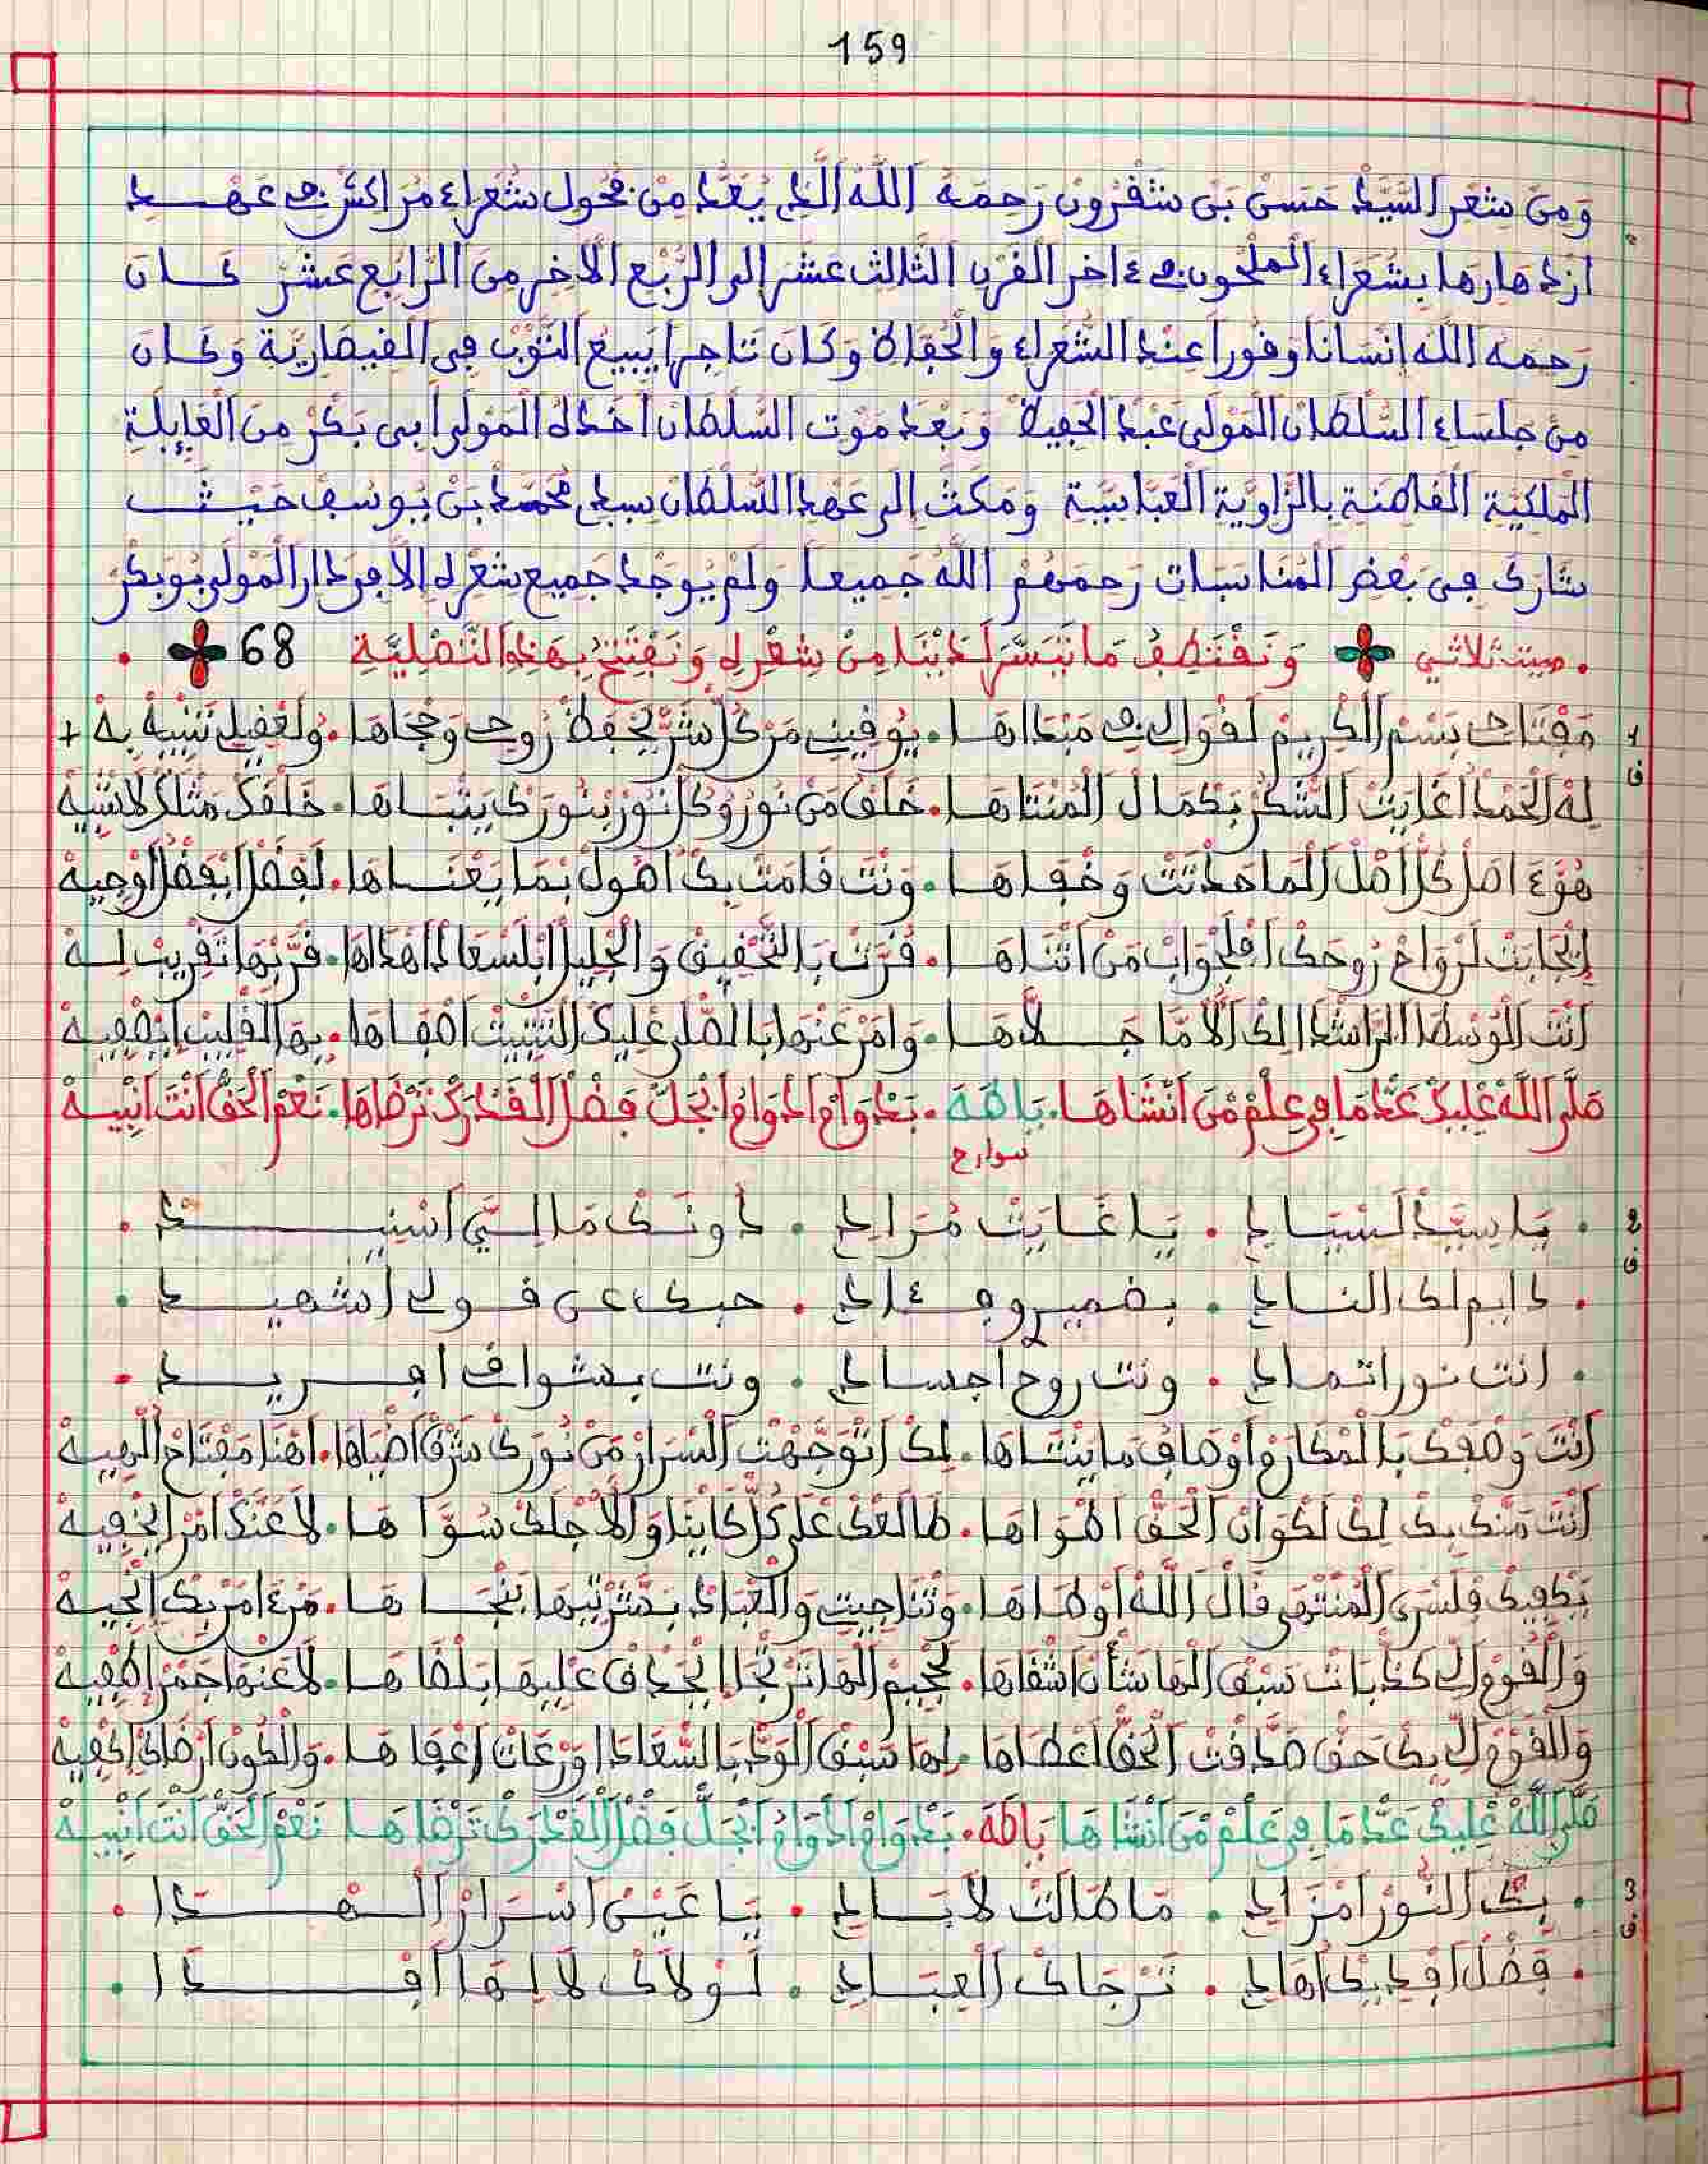 159
ومن شعر السيد حسن بن شقرون رحمه الله الذي يعد من فحول شعراء مراكش في عهد
ازدهارها بشعراء الملحون في ءاخر القرن الثالث عشر الى الربع الاخر من الرابع عشر كان
رحمه الله انسانا وقورا عند الشعراء والحفاظ وكان تاجرا يبيع الثوب في القيصارية وكان
من جلساء السلطان المولى عبد الحفيظ وبعد موت السلطان اخذه المولى ابي بكر من العايلة
الملكية القاطنة بالزاوية العباسية ومكث الى عهد السلطان سيدي محمد بن يوسف حيث
شارك في بعض المناسبات رحمهم الله جميعا ولم يوجد جميع شعره الا في دار المولى بوبكر
. مبيت ثلاثي ونقتطف ما تيسر لدينا من شعره ونفتتح بهذه التصلية 68 .
1 مفتاحي بسم الكريم لقوالي في مبداها . يوقيني من كل شر يحفظ روحي وحجاها . ولعقيلي تنبيه به +
ف له الحمد اغايت الشكر بكمال المنتاها . خلق من نورو كل نور بنورك يتباها . خلقك مثلك لاشبيه
هو ءاصل كل اصل الما حدتت وخفاها . ونت قامت بك اصول بما يعناها . لفضل ابفضل اوجيه
انجابت لرواح روحك افلجواب من اتناها . فزت بالتحقيق والجليل ابلسعادا اهداها . قربها تقريب ليه
انت الوسطا الراشدا لك الاما جلاها . وامر عنها بالصلى عليك التبيت اصفاها . بها القليب ايصفيه
صلى الله عليك عد ما في علم من انشاها . ياطه . بدوام الدوام انجل فضل القدرك ترضاها . نعم الحق انت انبيه
سوارح
2 . يا سيد لسياد . يا غايت مرادي . دونك ما لي اسنيد .
ف . دايم لك النادي . بضمير وفءادي . حبك عن قولي اشهيد .
. انت نور اتمادي . ونت روح اجسادي . ونت بشواق افريد .
انت وصفك بالمكارم اوصاف ما يتساها . لك اتوجهت السرار من نورك شرق اضياها . اهنا مفتاح الهيه
انت منك بك لك لكوان الحق اهواها . طالعك على كل كاينا والاجلك سواها . لا عندك امر ايخفيه
يكفيك فلسرى المنتهى قال الله اوطاها . وتناجيت والعباد بشربتها بنجاها . مرءامر بك انجيه
والقوم الي كذبات سبق الها شأن اشقاها . لجحيم الها نزجا ايحداق عليها ابلضاها . لا عنها جمر اطفيه
والقوم الي بك حق صدقت الحق اعطاها . لها سبق الود بالسعادا ورعات اعفاها . والكون ارضاك اكفيه
صلى الله عليك عد ما في علم من انشاها ياطه . بدوام الدوام انجل فضل القدرك ترضاها نعم الحق انت انبيه
3 . بك النور امزادي . ما طالت لابادي . يا عين اسرار الهدا .
ف . فضل افديك اهادي . ترجاك العبادي . لولاك لا ليها افدا .